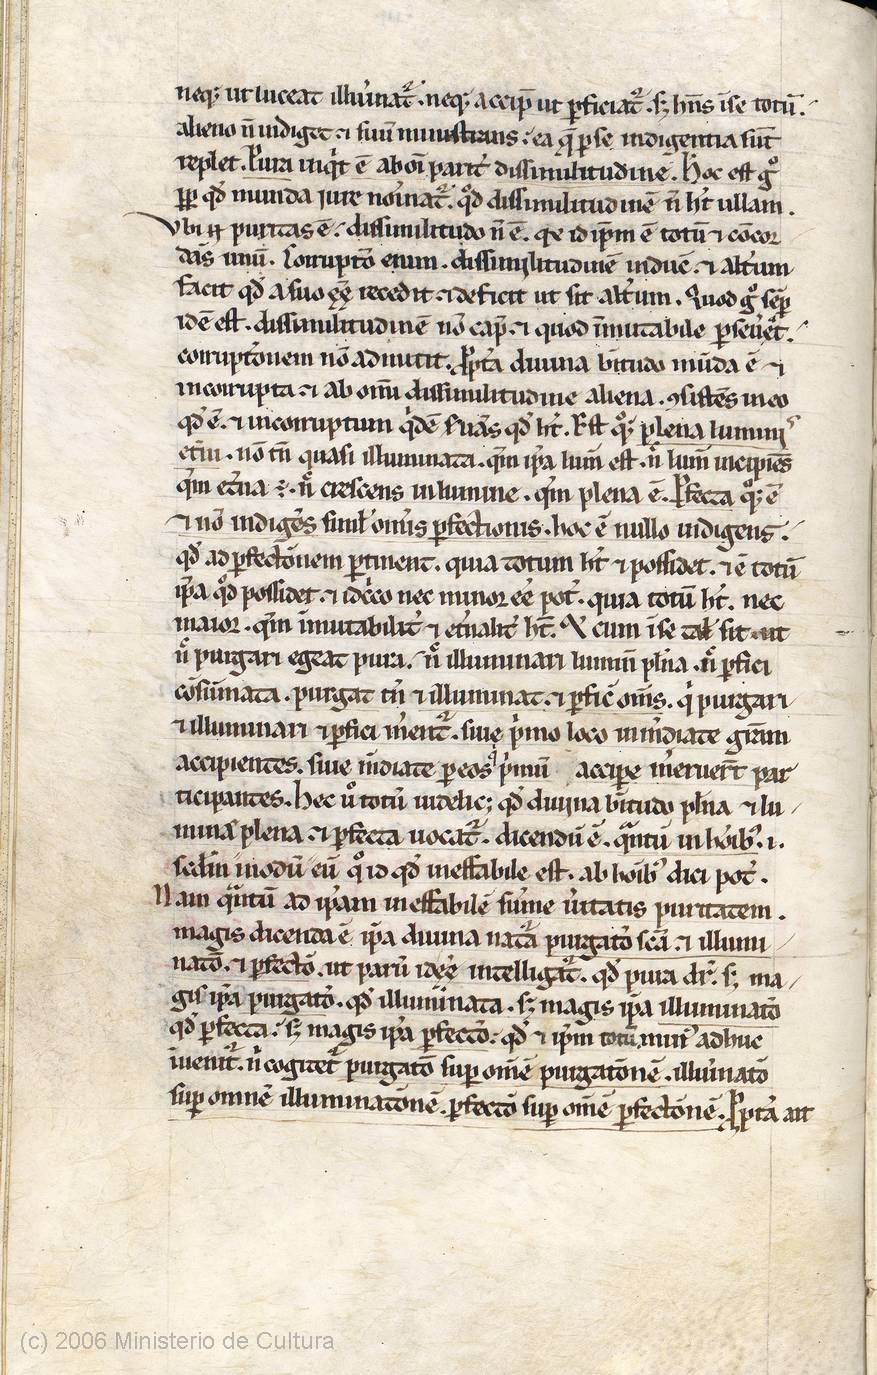 neq; ut luceat illuīnat̄. neq; accip̄ ut ꝑficiat̄. sꝫ hn̄s ī se totū.
alieno n̄ indiget ⁊ suū ministrans. ea q̄ ꝑ se indigentia sūt
replet. Pura inq̄t ē ab oī parte dissimilitudinē. Hoc est gͦ
ꝓp̄ qd̄ munda jure noīnat̄. qd̄ dissimilitudinē n̄ ht̄ ullam.
Vbi puritas ē. dissimilitudo n̄ ē. qꝛ id ip̄m ē totū ⁊ cōcor
dās unū. Corruptō enim. dissimilitudinē induc̄. ⁊ alt̄um
facit qd̄ a suo eē̄ recedit ⁊ deficit ut sit alt̄um. Quod gͦ semꝑ
idē est. dissimilitudinē nō cap̄. ⁊ quod īmutabile ꝑseūet.
corruptōnem nō admittit. Ꝓpt̄a diuina b̄titudo mūda ē ⁊
incorrupta ⁊ ab omī dissimilitudine aliena. ꝯsistēs in eo
qd̄ ē. ⁊ incorruptum q̄dē s̄uās qd̄ ht̄. Est qͦꝫ plena luminis
et̄ni. nō tn̄ quasi illuminata. qm̄ ip̄a lum̄ est. n̄ lum̄ incipiēs
qm̄ et̄na ē. n̄ crescens in lumine. qm̄ plena ē. Ꝑfecta qͦꝫ ē
⁊ nō indigēs simł omīs ꝑfectionis. hoc ē nullo indigens.
qd̄ ad ꝑfectōnem ꝑtinent. quia totum ht̄ ⁊ possidet. ⁊ ē totū
ip̄a qd̄ possidet. ⁊ idcͦco nec minor eē̄ pot̄. quia totū ht̄. nec
maior. qm̄ īmutabilit̄ ⁊ et̄nalit̄ ht̄. Et cum ī se tał sit ut
n̄ purgari egeat pura. n̄ illuminari lumīe pln̄a. n̄ ꝑfici
cōsūmata. purgat tn̄ ⁊ illuminat. ⁊ ꝑfic̄ om̄s. qͥ purgari
⁊ illuminari ⁊ ꝑfici m̄ent̄. siue pͥmo loco inm̄diate gr̄am
accipientes. siue m̄diate ꝑ eos qͥ pͥmū accipe m̄eruer̄t par
ticipantes. Hec ū totū uidelicꝫ qd̄ diuina b̄titudo pln̄a ⁊ lu
mina plena ⁊ ꝑfecta uocat̄. dicendū ē. qͣntū in hōibꝰ. i.
sed̄m modū eū qͦ id qd̄ ineffabile est. ab hōibꝰ dici pot̄.
Nam qͣntū ad ip̄am ineffabilē sūme u̅itatis puritatem.
magis dicenda ē ip̄a diuina nat̄a purgatō scā ⁊ illumi
natō. ⁊ ꝑfectō. ut parū id eē̄ intelligat̄. qd̄ pura dr̄. sꝫ ma
gis ip̄a purgatō. qd̄ illumīnata. sꝫ magis ip̄a illuminatō
qd̄ ꝑfecta. sꝫ magis ip̄a ꝑfectō. qd̄ ⁊ ip̄m totū adhuc
cogitet̄ purgatō suꝑ om̄ē purgatōnē. illuīnatō
suꝑ omnē illuminatōnē. ꝑfectō suꝑ om̄ē ꝑfectōnē. Ꝓpt̄a ait
(c) 2006 Ministerio de Cultura